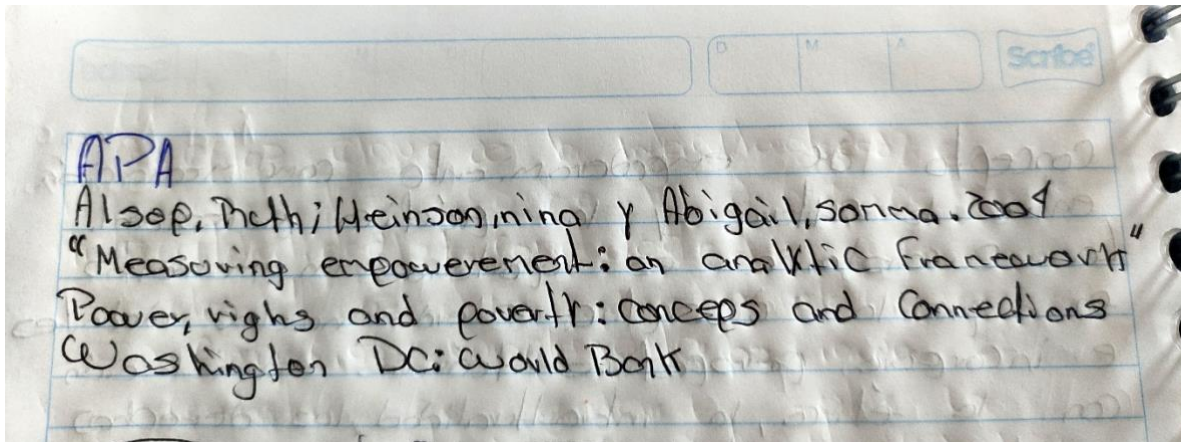 Scribe
D M A
APA
Alsop, Ruth; Heinson, nina y Abigail, somma. 2004
"Measuring empowerement: an analytic Framework"
Power, righs and poverty: conceps and Connections
Washington DC: World Bank